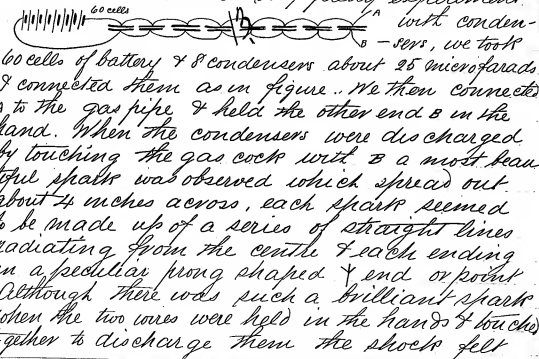 60 cells
A with conden-
B - sers, we took
60 cells of battery & 8 condensers about 25 microfarads
& connected them as in figure.. We then connected
A to the gas pipe & held the other end B in the
hand. When the condensers were discharged
by touching the gas cock with B a most beau
tiful spark was observed which spread out
about 4 inches across, each spark seemed
to be made up of a series of straight lines
radiating from the centre & each ending
in a peculiar prong shaped Y end or point
Although there was such a brilliant spark
when the two wires were held in the hands & touched
together to discharge them the shock felt